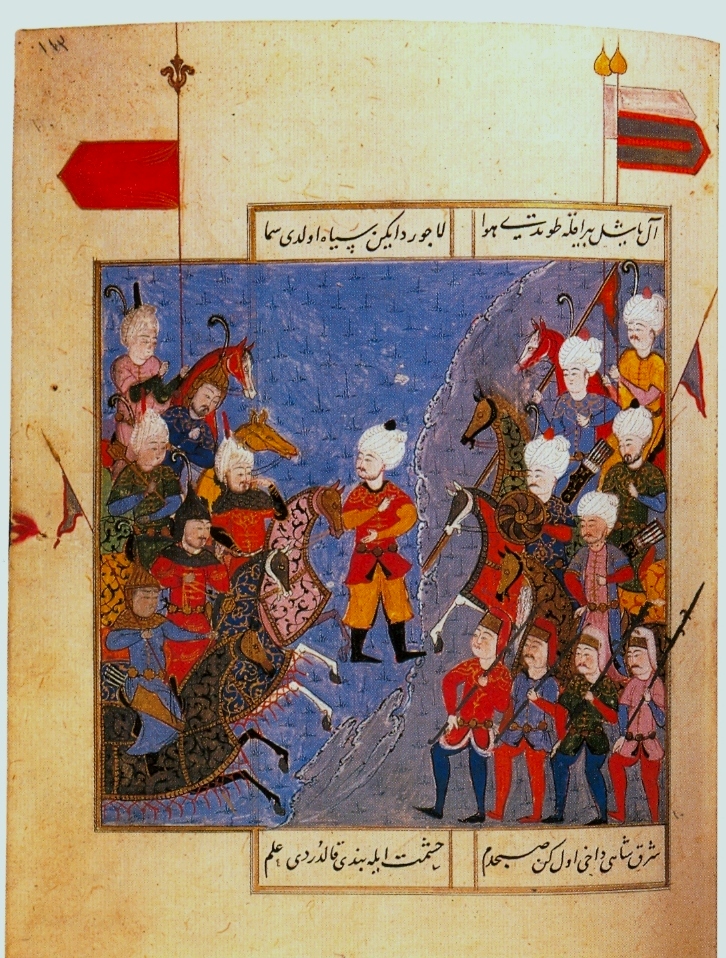 ١٤٣
آل یاشل بیراقله طوندی هوا
لاجورد ایکن سیاه اولدی سما
شرق شاهی داخی اول کن صبحدم
حشمت ایله بندی قالدردی علم